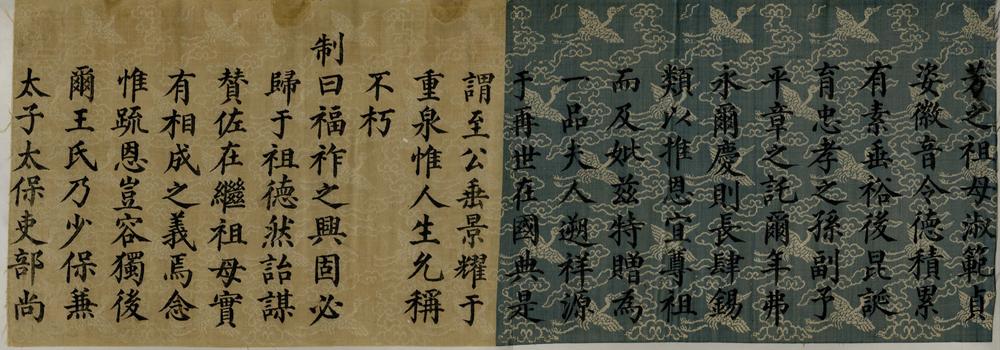 芳之祖母淑範貞
姿徽音令德積累
有素垂裕後昆誕
育忠孝之孫副予
平章之託爾年弗
永爾慶則長肆錫
類以推恩宜尊祖
而及妣茲特贈為
一品夫人遡祥源
于再世在國典是
謂至公垂景耀于
重泉惟人生允稱
不朽
制曰福祚之興固必
歸于祖德然詒謀
贊佐在繼祖母實
有相成之義焉念
惟疏恩豈容獨後
爾王氏乃少保兼
太子太保吏部尚